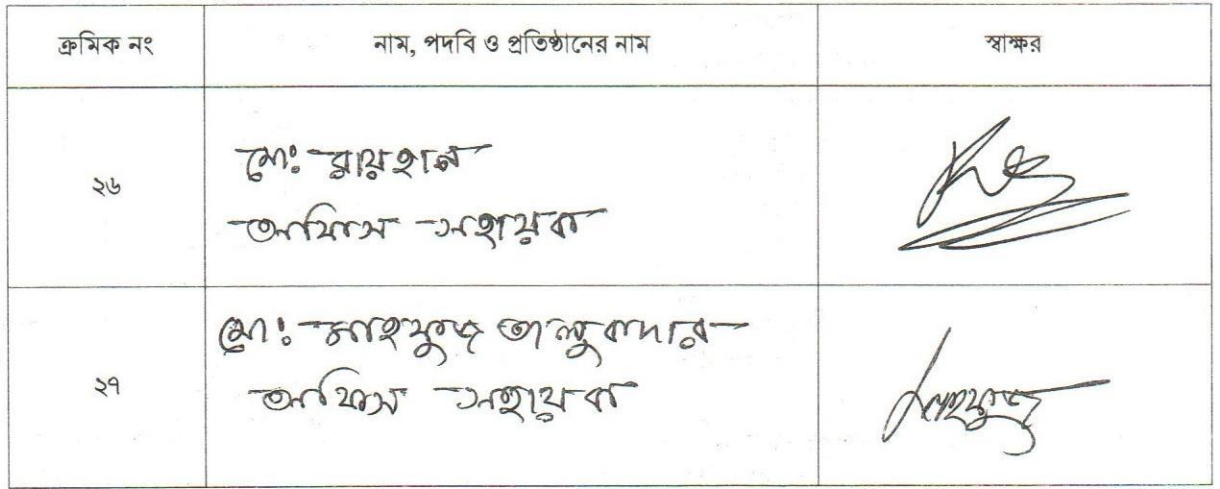 ক্রমিক নং নাম, পদবি ও প্রতিষ্ঠানের নাম স্বাক্ষর
২৬
মোঃ রায়হান
অফিস সহায়ক
২৭
মোঃ মাহফুজ তালুকদার
অফিস সহায়ক
মাহফুজ